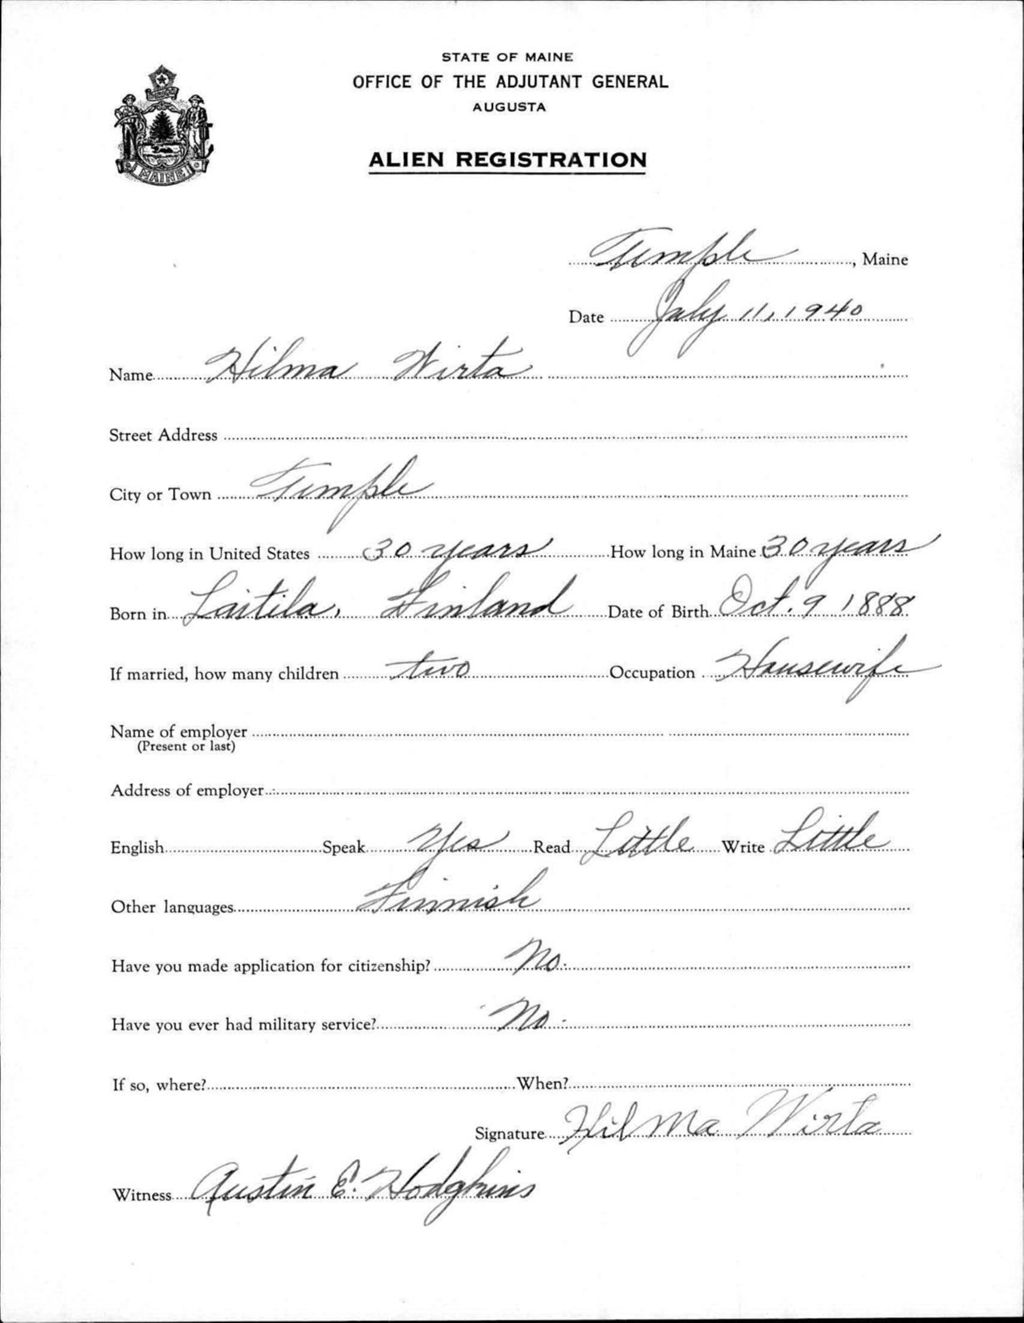 STATE OF MAINE
OFFICE OF THE ADJUTANT GENERAL
AUGUSTA
ALIEN REGISTRATION
MAINE
Temple, Maine
Date July 11, 1940
Name Hilma Wirta
Street Address
City or Town Temple
How long in United States 30 years How long in Maine 30 years
Born in Laitila, Finland Date of Birth Oct. 9 1888
If married, how many children two Occupation Housewife
Name of employer
(Present or last)
Address of employer
English Speak Yes Read Little Write Little
Other languages Finnish
Have you made application for citizenship? No.
Have you ever had military service? No.
If so, where? When?
Signature Hilma Wirta
Witness Austin E. Hodgkins